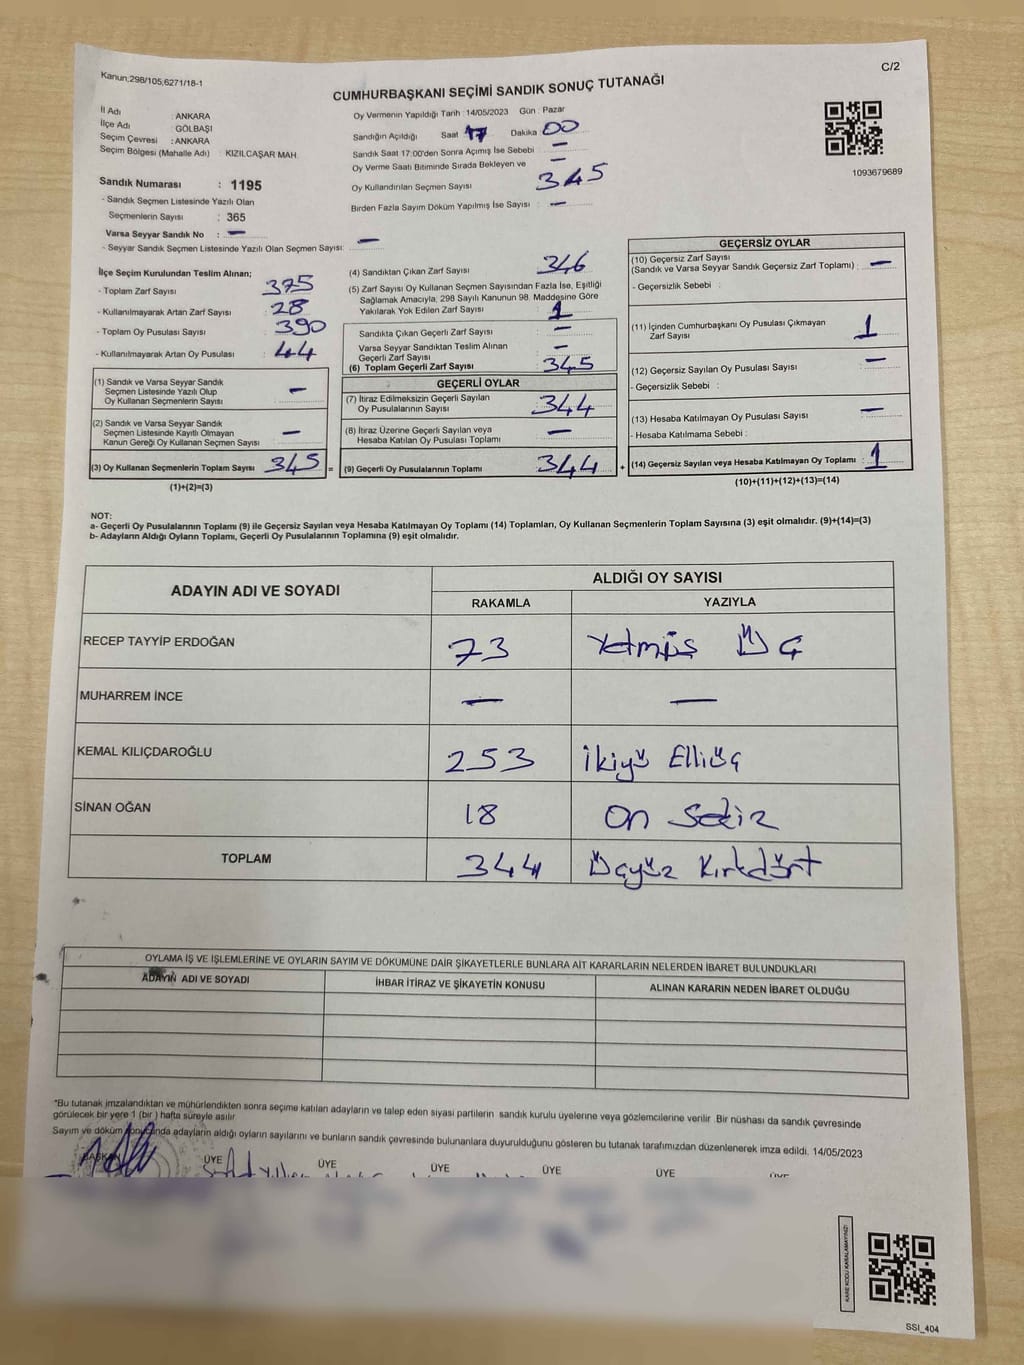 Kanun;298/105,6271/18-1
C/2
CUMHURBAŞKANI SEÇİMİ SANDIK SONUÇ TUTANAĞI
İl Adı : ANKARA
İlçe Adı : GÖLBAŞI
Seçim Çevresi : ANKARA
Seçim Bölgesi (Mahalle Adı) : KIZILCAŞAR MAH.
Sandık Numarası : 1195
- Sandık Seçmen Listesinde Yazılı Olan
Seçmenlerin Sayısı : 365
Varsa Seyyar Sandık No : —
- Seyyar Sandık Seçmen Listesinde Yazılı Olan Seçmen Sayısı: —
Oy Vermenin Yapıldığı Tarih : 14/05/2023 Gün : Pazar
Sandığın Açıldığı Saat 17 Dakika 00
Sandık Saat 17:00'den Sonra Açımış İse Sebebi —
Oy Verme Saati Bitiminde Sırada Bekleyen ve —
Oy Kullandırılan Seçmen Sayısı 345
Birden Fazla Sayım Döküm Yapılmış İse Sayısı : —
1093679689
İlçe Seçim Kurulundan Teslim Alınan;
- Toplam Zarf Sayısı : 375
- Kullanılmayarak Artan Zarf Sayısı : 28
- Toplam Oy Pusulası Sayısı : 390
- Kullanılmayarak Artan Oy Pusulası : 44
(1) Sandık ve Varsa Seyyar Sandık
Seçmen Listesinde Yazılı Olup
Oy Kullanan Seçmenlerin Sayısı : —
(2) Sandık ve Varsa Seyyar Sandık
Seçmen Listesinde Kayıtlı Olmayan
Kanun Gereği Oy Kullanan Seçmen Sayısı : —
(3) Oy Kullanan Seçmenlerin Toplam Sayısı : 345 =
(1)+(2)=(3)
(4) Sandıktan Çıkan Zarf Sayısı 346
(5) Zarf Sayısı Oy Kullanan Seçmen Sayısından Fazla İse, Eşitliği
Sağlamak Amacıyla, 298 Sayılı Kanunun 98. Maddesine Göre
Yakılarak Yok Edilen Zarf Sayısı : 1
Sandıkta Çıkan Geçerli Zarf Sayısı : —
Varsa Seyyar Sandıktan Teslim Alınan
Geçerli Zarf Sayısı : —
(6) Toplam Geçerli Zarf Sayısı : 345
GEÇERLİ OYLAR
(7) İtiraz Edilmeksizin Geçerli Sayılan
Oy Pusulalarının Sayısı : 344
(8) İtiraz Üzerine Geçerli Sayılan veya
Hesaba Katılan Oy Pusulası Toplamı : —
(9) Geçerli Oy Pusulalarının Toplamı : 344 +
GEÇERSİZ OYLAR
(10) Geçersiz Zarf Sayısı
(Sandık ve Varsa Seyyar Sandık Geçersiz Zarf Toplamı) : —
- Geçersizlik Sebebi :
(11) İçinden Cumhurbaşkanı Oy Pusulası Çıkmayan
Zarf Sayısı : 1
(12) Geçersiz Sayılan Oy Pusulası Sayısı : —
- Geçersizlik Sebebi :
(13) Hesaba Katılmayan Oy Pusulası Sayısı : —
- Hesaba Katılmama Sebebi :
(14) Geçersiz Sayılan veya Hesaba Katılmayan Oy Toplamı : 1
(10)+(11)+(12)+(13)=(14)
NOT:
a- Geçerli Oy Pusulalarının Toplamı (9) ile Geçersiz Sayılan veya Hesaba Katılmayan Oy Toplamı (14) Toplamları, Oy Kullanan Seçmenlerin Toplam Sayısına (3) eşit olmalıdır. (9)+(14)=(3)
b- Adayların Aldığı Oyların Toplamı, Geçerli Oy Pusulalarının Toplamına (9) eşit olmalıdır.
ADAYIN ADI VE SOYADI ALDIĞI OY SAYISI
RAKAMLA YAZIYLA
RECEP TAYYİP ERDOĞAN 73 Yetmiş Üç
MUHARREM İNCE — —
KEMAL KILIÇDAROĞLU 253 İkiyü Elliüç
SİNAN OĞAN 18 on Sekiz
TOPLAM 344 Üçyüz Kırkdört
OYLAMA İŞ VE İŞLEMLERİNE VE OYLARIN SAYIM VE DÖKÜMÜNE DAİR ŞİKAYETLERLE BUNLARA AİT KARARLARIN NELERDEN İBARET BULUNDUKLARI
ADAYIN ADI VE SOYADI İHBAR İTİRAZ VE ŞİKAYETİN KONUSU ALINAN KARARIN NEDEN İBARET OLDUĞU
*Bu tutanak imzalandıktan ve mühürlendikten sonra seçime katılan adayların ve talep eden siyasi partilerin sandık kurulu üyelerine veya gözlemcilerine verilir. Bir nüshası da sandık çevresinde
görülecek bir yere 1 (bir) hafta süreyle asılır.
Sayım ve döküm sonucunda adayların aldığı oyların sayılarını ve bunların sandık çevresinde bulunanlara duyurulduğunu gösteren bu tutanak tarafımızdan düzenlenerek imza edildi. 14/05/2023
BAŞKAN ÜYE ÜYE ÜYE ÜYE ÜYE ÜYE
KARE KODU KARALAMAYINIZ!
SSİ_404